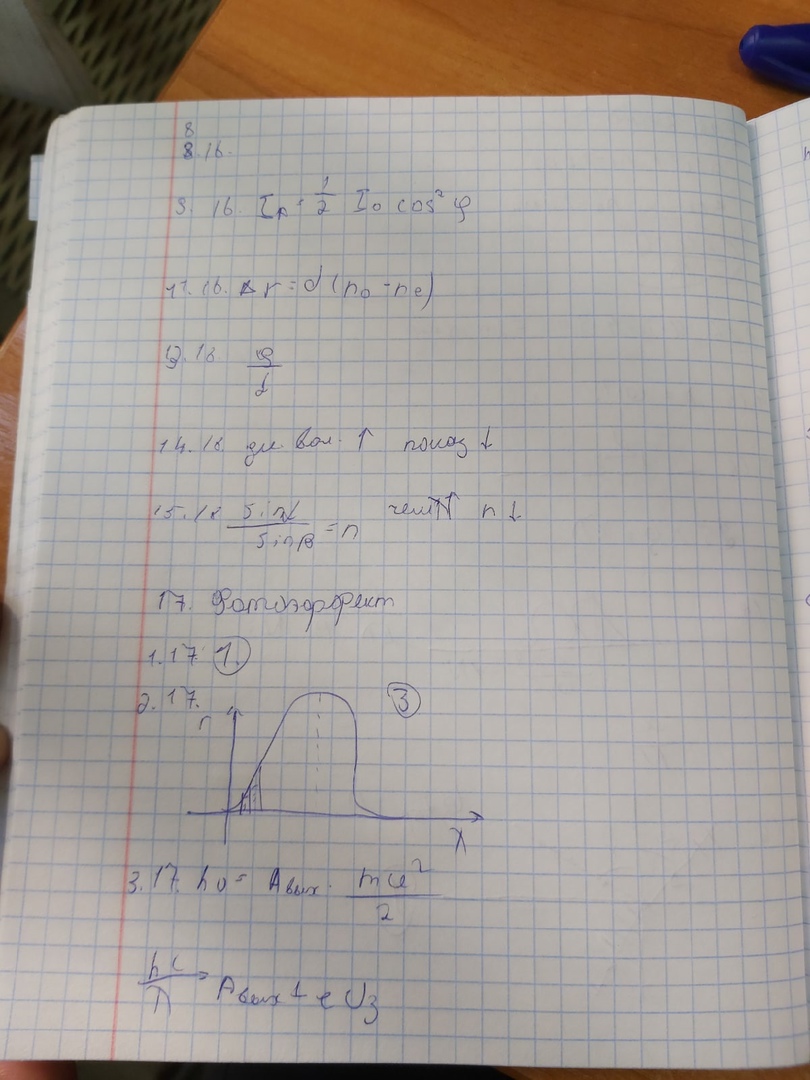 8
8.16.
9. 16. I_A = 1/2 I_0 cos² φ
11.16. Δ r = d (n_0 - n_e)
16 φ/d
14.16 дл. вол. ↑ показ ↓
15.16 sin α / sin β = n чем ↑ n ↓
17. Фотоэффект
1.17 1.
2.17. r 3
λ
3.17. hυ = A вых. mυ²/2
hc/λ A вых + e U_з